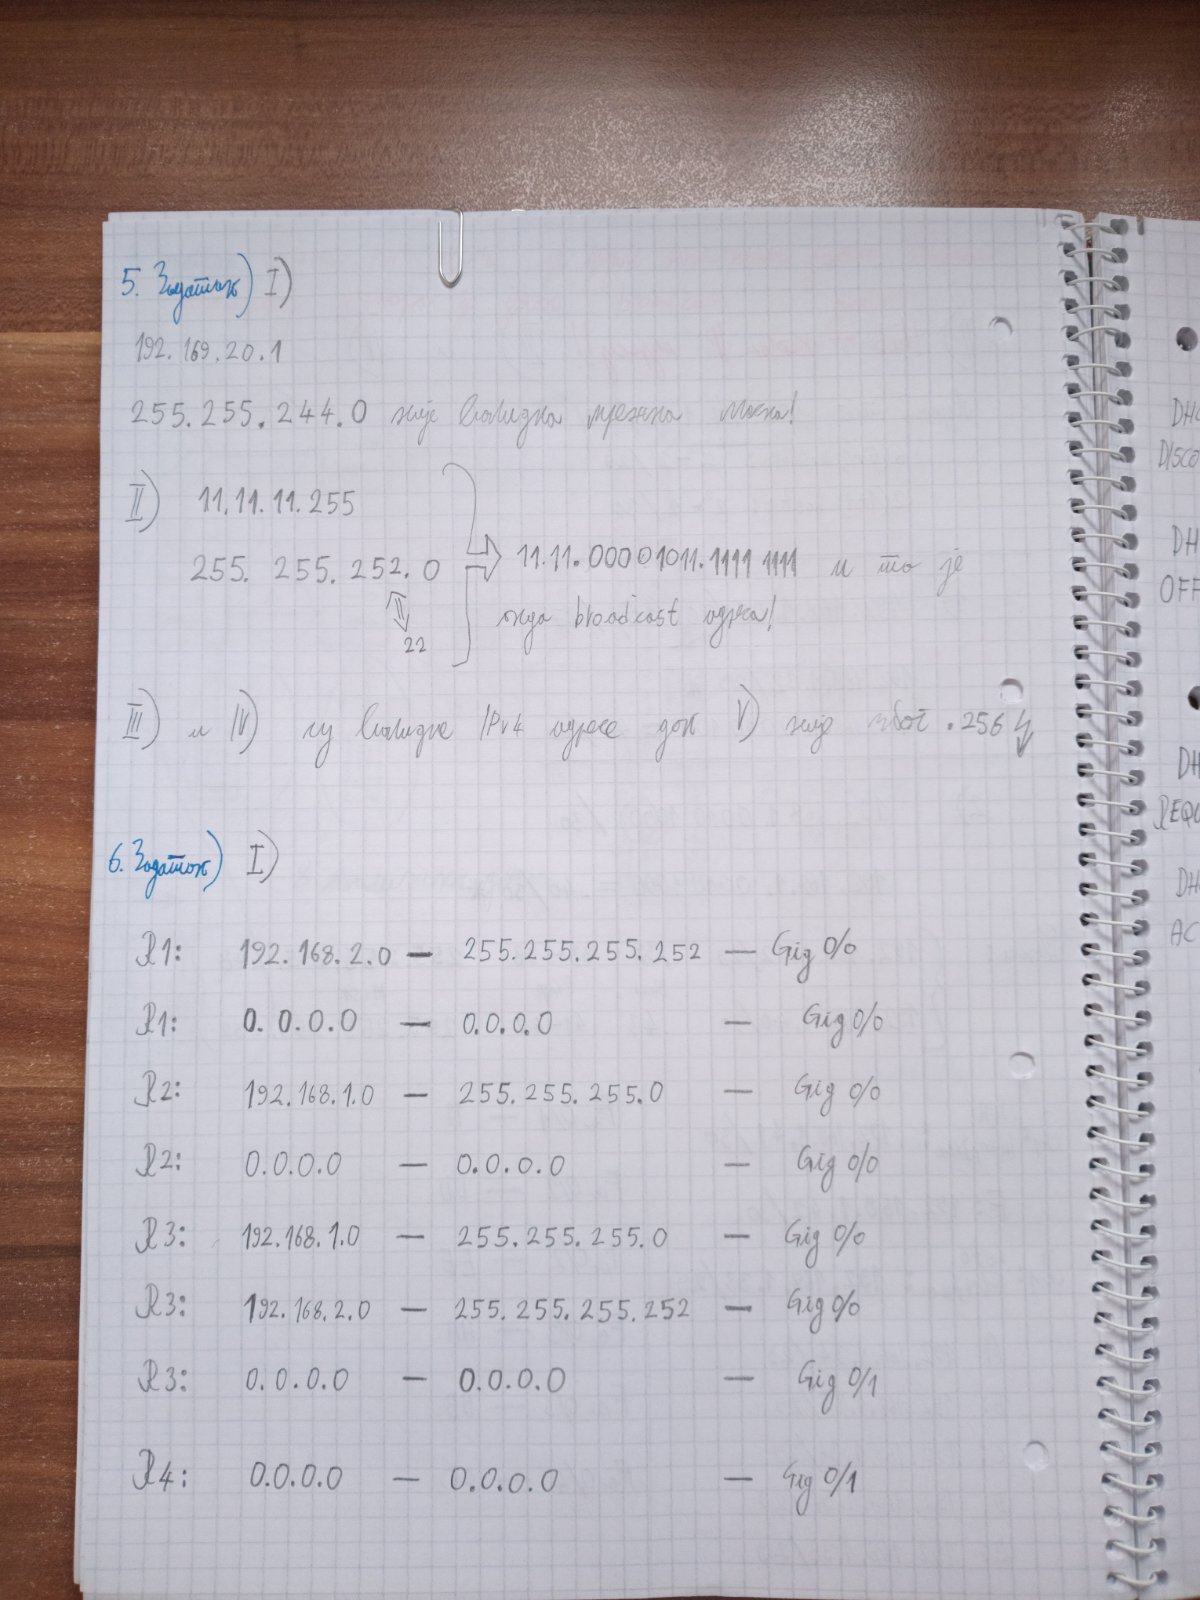 5. Задаток) I)
192.169.20.1
255.255.244.0 није валидна мрежна маска!
II) 11.11.11.255
255.255.252.0 ⇒ 11.11.00001011.1111 1111 и то је
22
онда broadcast адреса!
III) и IV) су валидне IPv4 адресе док V) није због .256
6. Задаток) I)
R1: 192.168.2.0 — 255.255.255.252 — Gig 0/0
R1: 0.0.0.0 — 0.0.0.0 — Gig 0/0
R2: 192.168.1.0 — 255.255.255.0 — Gig 0/0
R2: 0.0.0.0 — 0.0.0.0 — Gig 0/0
R3: 192.168.1.0 — 255.255.255.0 — Gig 0/0
R3: 192.168.2.0 — 255.255.255.252 — Gig 0/0
R3: 0.0.0.0 — 0.0.0.0 — Gig 0/1
R4: 0.0.0.0 — 0.0.0.0 — Gig 0/1